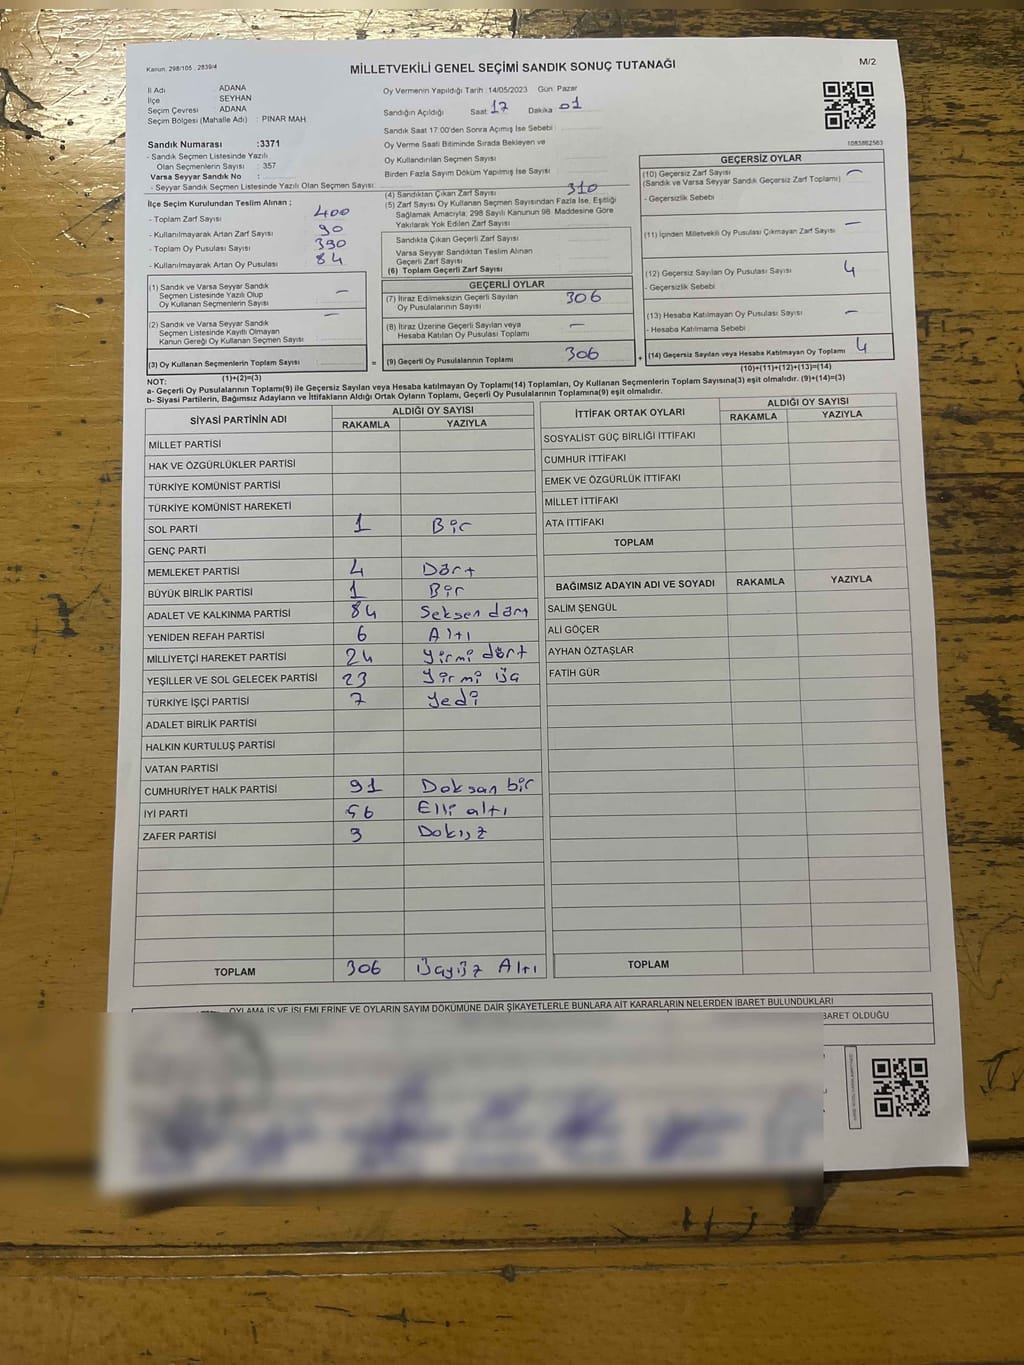 Kanun. 298/105 , 2839/4
MİLLETVEKİLİ GENEL SEÇİMİ SANDIK SONUÇ TUTANAĞI
M/2
İl Adı : ADANA
İlçe SEYHAN
Seçim Çevresi : ADANA
Seçim Bölgesi (Mahalle Adı) : PINAR MAH
Sandık Numarası :3371
- Sandık Seçmen Listesinde Yazılı
Olan Seçmenlerin Sayısı : 357
Varsa Seyyar Sandık No :
- Seyyar Sandık Seçmen Listesinde Yazılı Olan Seçmen Sayısı:
İlçe Seçim Kurulundan Teslim Alınan ;
- Toplam Zarf Sayısı 400
- Kullanılmayarak Artan Zarf Sayısı 90
- Toplam Oy Pusulası Sayısı 390
- Kullanılmayarak Artan Oy Pusulası 84
(1) Sandık ve Varsa Seyyar Sandık
Seçmen Listesinde Yazılı Olup
Oy Kullanan Seçmenlerin Sayısı —
(2) Sandık ve Varsa Seyyar Sandık
Seçmen Listesinde Kayıtlı Olmayan
Kanun Gereği Oy Kullanan Seçmen Sayısı —
(3) Oy Kullanan Seçmenlerin Toplam Sayısı
Oy Vermenin Yapıldığı Tarih :14/05/2023 Gün: Pazar
Sandığın Açıldığı Saat 17 Dakika 01
Sandık Saat 17:00'den Sonra Açımış İse Sebebi :
Oy Verme Saati Bitiminde Sırada Bekleyen ve
Oy Kullandırılan Seçmen Sayısı
Birden Fazla Sayım Döküm Yapılmış İse Sayısı
(4) Sandıktan Çıkan Zarf Sayısı 310
(5) Zarf Sayısı Oy Kullanan Seçmen Sayısından Fazla İse, Eşitliği
Sağlamak Amacıyla, 298 Sayılı Kanunun 98. Maddesine Göre
Yakılarak Yok Edilen Zarf Sayısı
Sandıkta Çıkan Geçerli Zarf Sayısı
Varsa Seyyar Sandıktan Teslim Alınan
Geçerli Zarf Sayısı
(6) Toplam Geçerli Zarf Sayısı
GEÇERLİ OYLAR
(7) İtiraz Edilmeksizin Geçerli Sayılan
Oy Pusulalarının Sayısı 306
(8) İtiraz Üzerine Geçerli Sayılan veya
Hesaba Katılan Oy Pusulası Toplamı —
= (9) Geçerli Oy Pusulalarının Toplamı 306 +
1083862563
GEÇERSİZ OYLAR
(10) Geçersiz Zarf Sayısı
(Sandık ve Varsa Seyyar Sandık Geçersiz Zarf Toplamı) —
- Geçersizlik Sebebi
(11) İçinden Milletvekil Oy Pusulası Çıkmayan Zarf Sayısı —
(12) Geçersiz Sayılan Oy Pusulası Sayısı 4
- Geçersizlik Sebebi
(13) Hesaba Katılmayan Oy Pusulası Sayısı —
- Hesaba Katılmama Sebebi
(14) Geçersiz Sayılan veya Hesaba Katılmayan Oy Toplamı 4
NOT: (1)+(2)=(3)
(10)+(11)+(12)+(13)=(14)
a- Geçerli Oy Pusulalarının Toplamı(9) ile Geçersiz Sayılan veya Hesaba katılmayan Oy Toplamı(14) Toplamları, Oy Kullanan Seçmenlerin Toplam Sayısına(3) eşit olmalıdır. (9)+(14)=(3)
b- Siyasi Partilerin, Bağımsız Adayların ve İttifakların Aldığı Ortak Oyların Toplamı, Geçerli Oy Pusulalarının Toplamına(9) eşit olmalıdır.
SİYASİ PARTİNİN ADI ALDIĞI OY SAYISI
RAKAMLA YAZIYLA
MİLLET PARTİSİ
HAK VE ÖZGÜRLÜKLER PARTİSİ
TÜRKİYE KOMÜNİST PARTİSİ
TÜRKİYE KOMÜNİST HAREKETİ
SOL PARTİ 1 Bir
GENÇ PARTİ
MEMLEKET PARTİSİ 4 Dört
BÜYÜK BİRLİK PARTİSİ 1 Bir
ADALET VE KALKINMA PARTİSİ 84 Seksen dört
YENİDEN REFAH PARTİSİ 6 Altı
MİLLİYETÇİ HAREKET PARTİSİ 24 Yirmi dört
YEŞİLLER VE SOL GELECEK PARTİSİ 23 Yirmi üç
TÜRKİYE İŞÇİ PARTİSİ 7 Yedi
ADALET BİRLİK PARTİSİ
HALKIN KURTULUŞ PARTİSİ
VATAN PARTİSİ
CUMHURİYET HALK PARTİSİ 91 Doksan bir
İYİ PARTİ 56 Elli altı
ZAFER PARTİSİ 9 Dokuz
TOPLAM 306 Üçyüz Altı
İTTİFAK ORTAK OYLARI ALDIĞI OY SAYISI
RAKAMLA YAZIYLA
SOSYALİST GÜÇ BİRLİĞİ İTTİFAKI
CUMHUR İTTİFAKI
EMEK VE ÖZGÜRLÜK İTTİFAKI
MİLLET İTTİFAKI
ATA İTTİFAKI
TOPLAM
BAĞIMSIZ ADAYIN ADI VE SOYADI RAKAMLA YAZIYLA
SALİM ŞENGÜL
ALİ GÖÇER
AYHAN ÖZTAŞLAR
FATİH GÜR
TOPLAM
OYLAMA İŞ VE İŞLEMLERİNE VE OYLARIN SAYIM DÖKÜMÜNE DAİR ŞİKAYETLERLE BUNLARA AİT KARARLARIN NELERDEN İBARET BULUNDUKLARI
BARET OLDUĞU